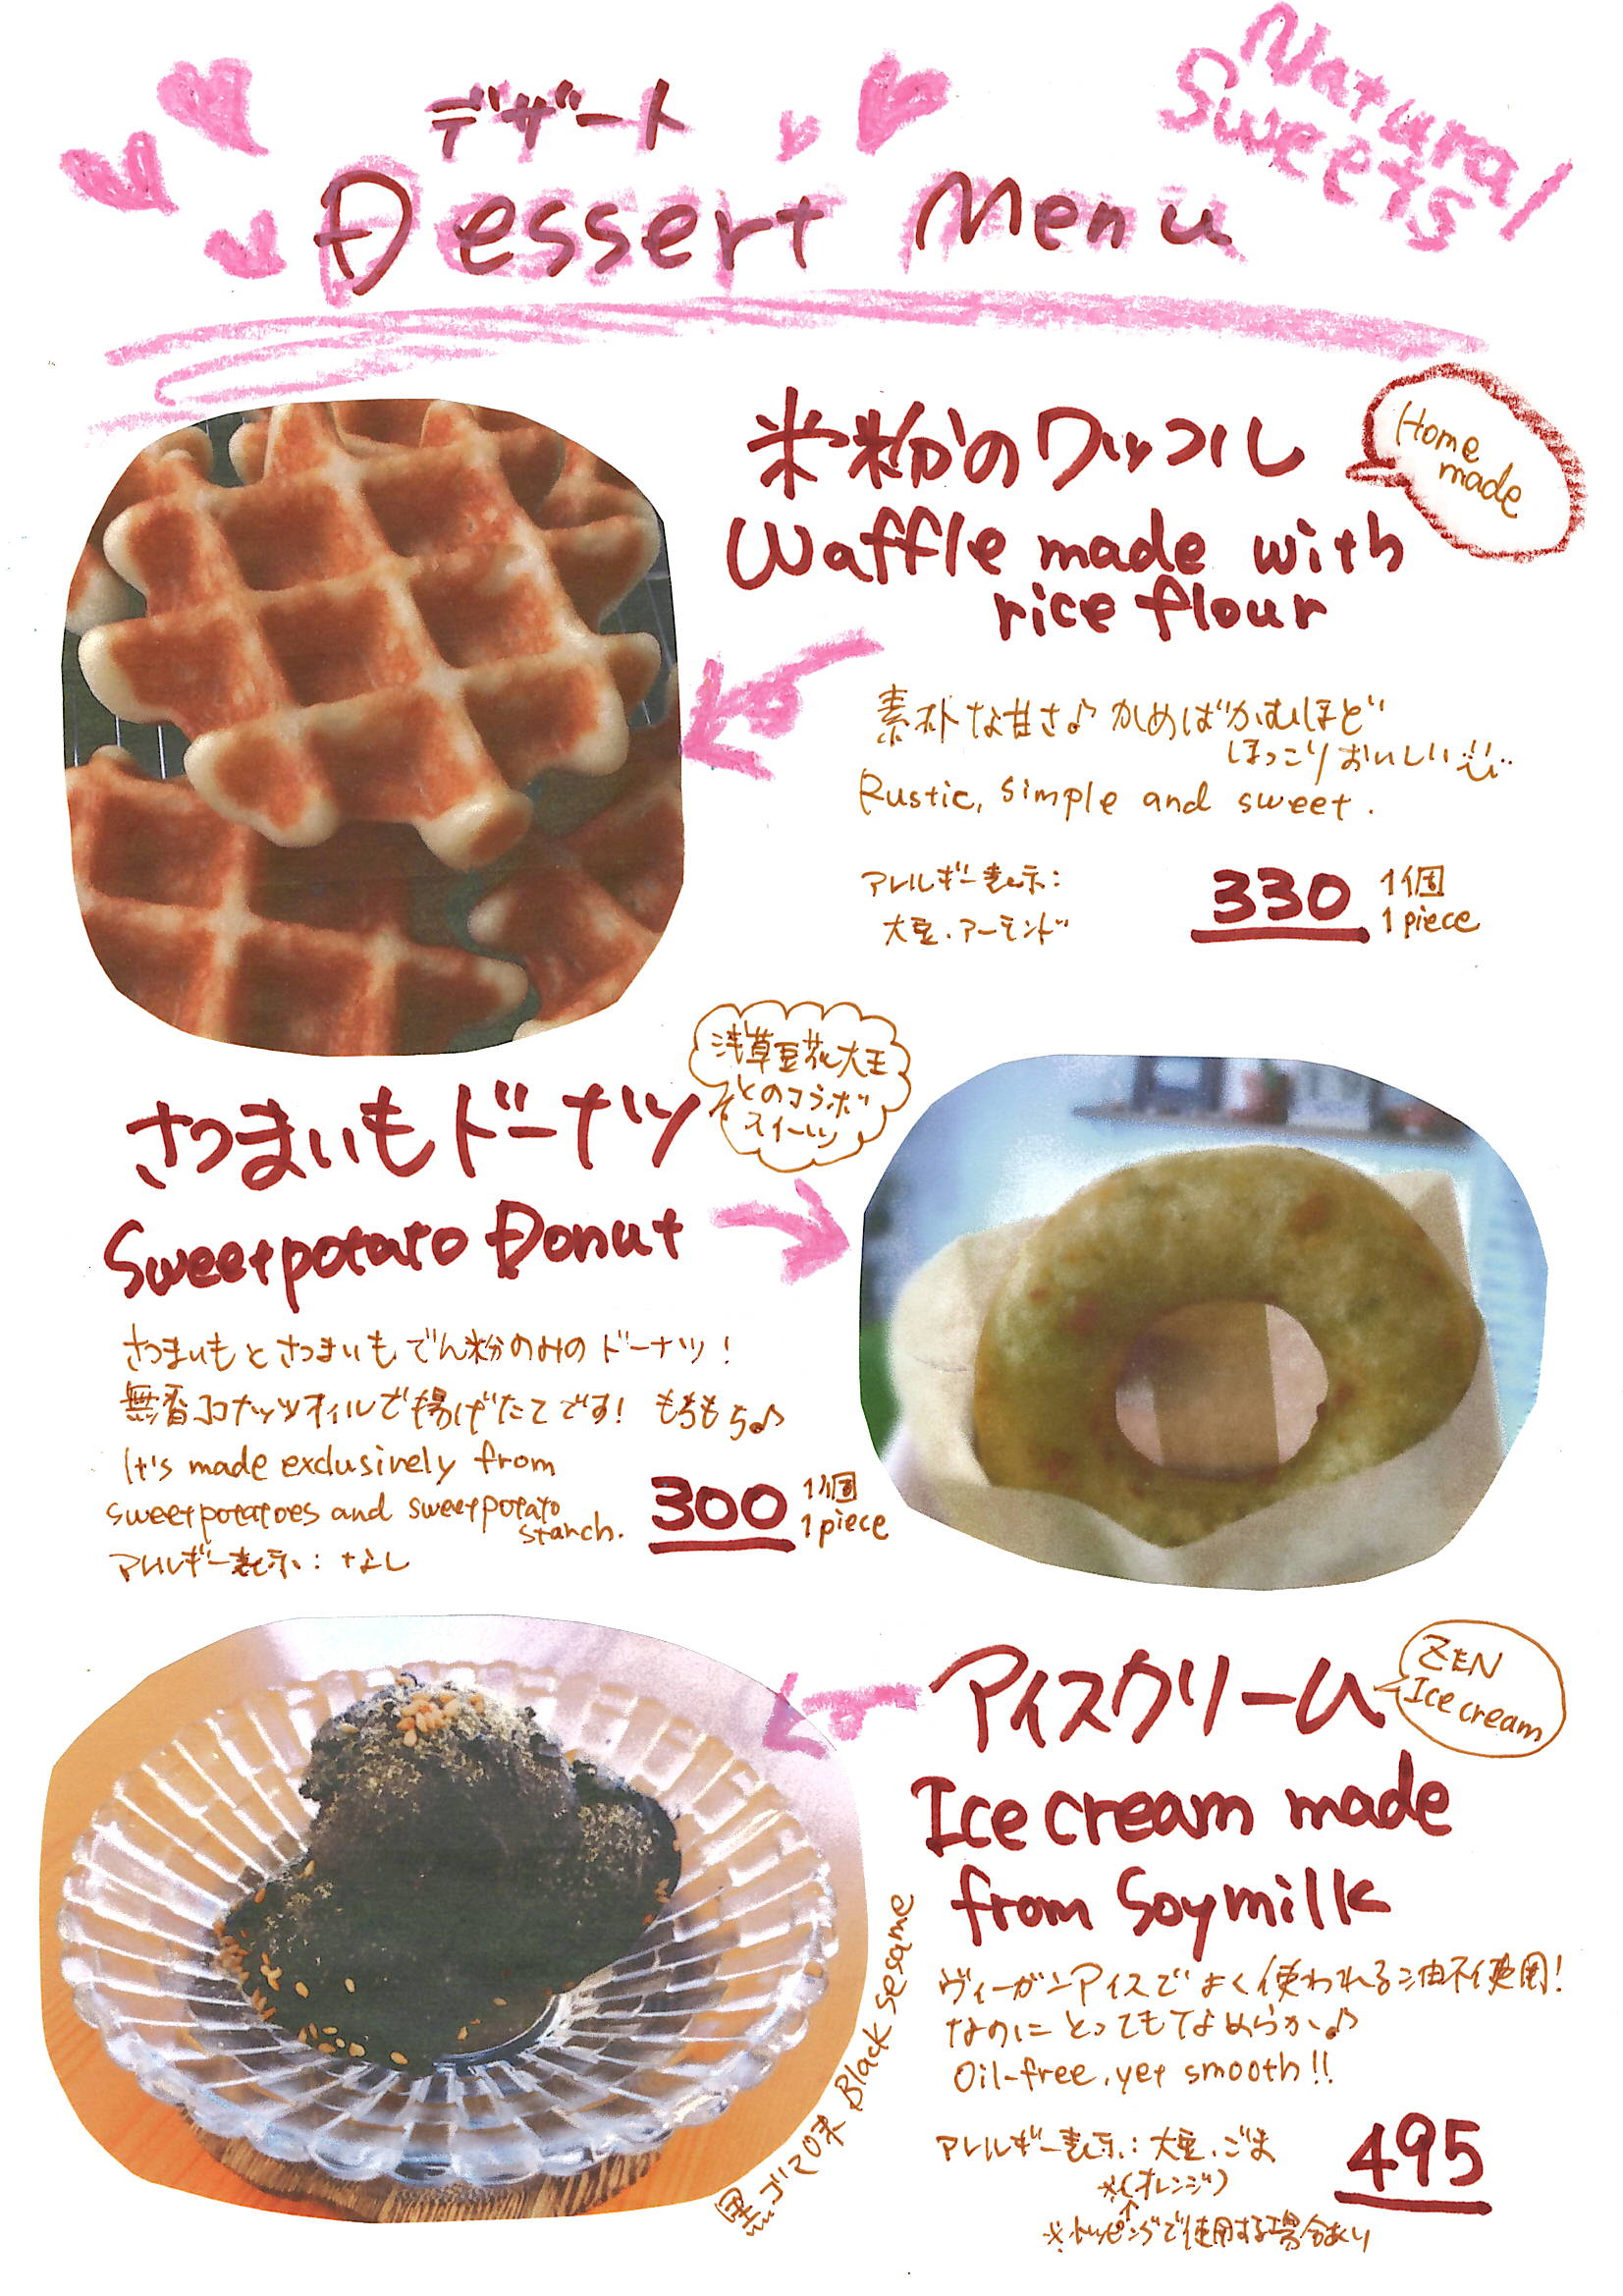 デザート
Dessert Menu
Natural
Sweets
米粉のワッフル
Home
made
Waffle made with
rice flour
素朴な甘さ♪かめばかむほど
ほっこりおいしい
Rustic, simple and sweet.
アレルギー表示:
大豆、アーモンド
330
1個
1 piece
浅草豆花大王
とのコラボ
スイーツ
さつまいもドーナツ
Sweetpotato Donut
さつまいもとさつまいもでん粉のみのドーナツ!
無香ココナッツオイルで揚げたてです! もちもち♪
It's made exclusively from
sweetpotatoes and sweetpotato
starch.
300
1個
1 piece
アレルギー表示:なし
アイスクリーム
ZEN
Ice cream
Ice cream made
from Soymilk
ヴィーガンアイスでよく使われる油不使用!
なのにとってもなめらか♪
Oil-free, yet smooth!!
アレルギー表示:大豆、ごま
※(オレンジ)
↑
※トッピングで使用する場合あり
495
黒ゴマ味 Black sesame